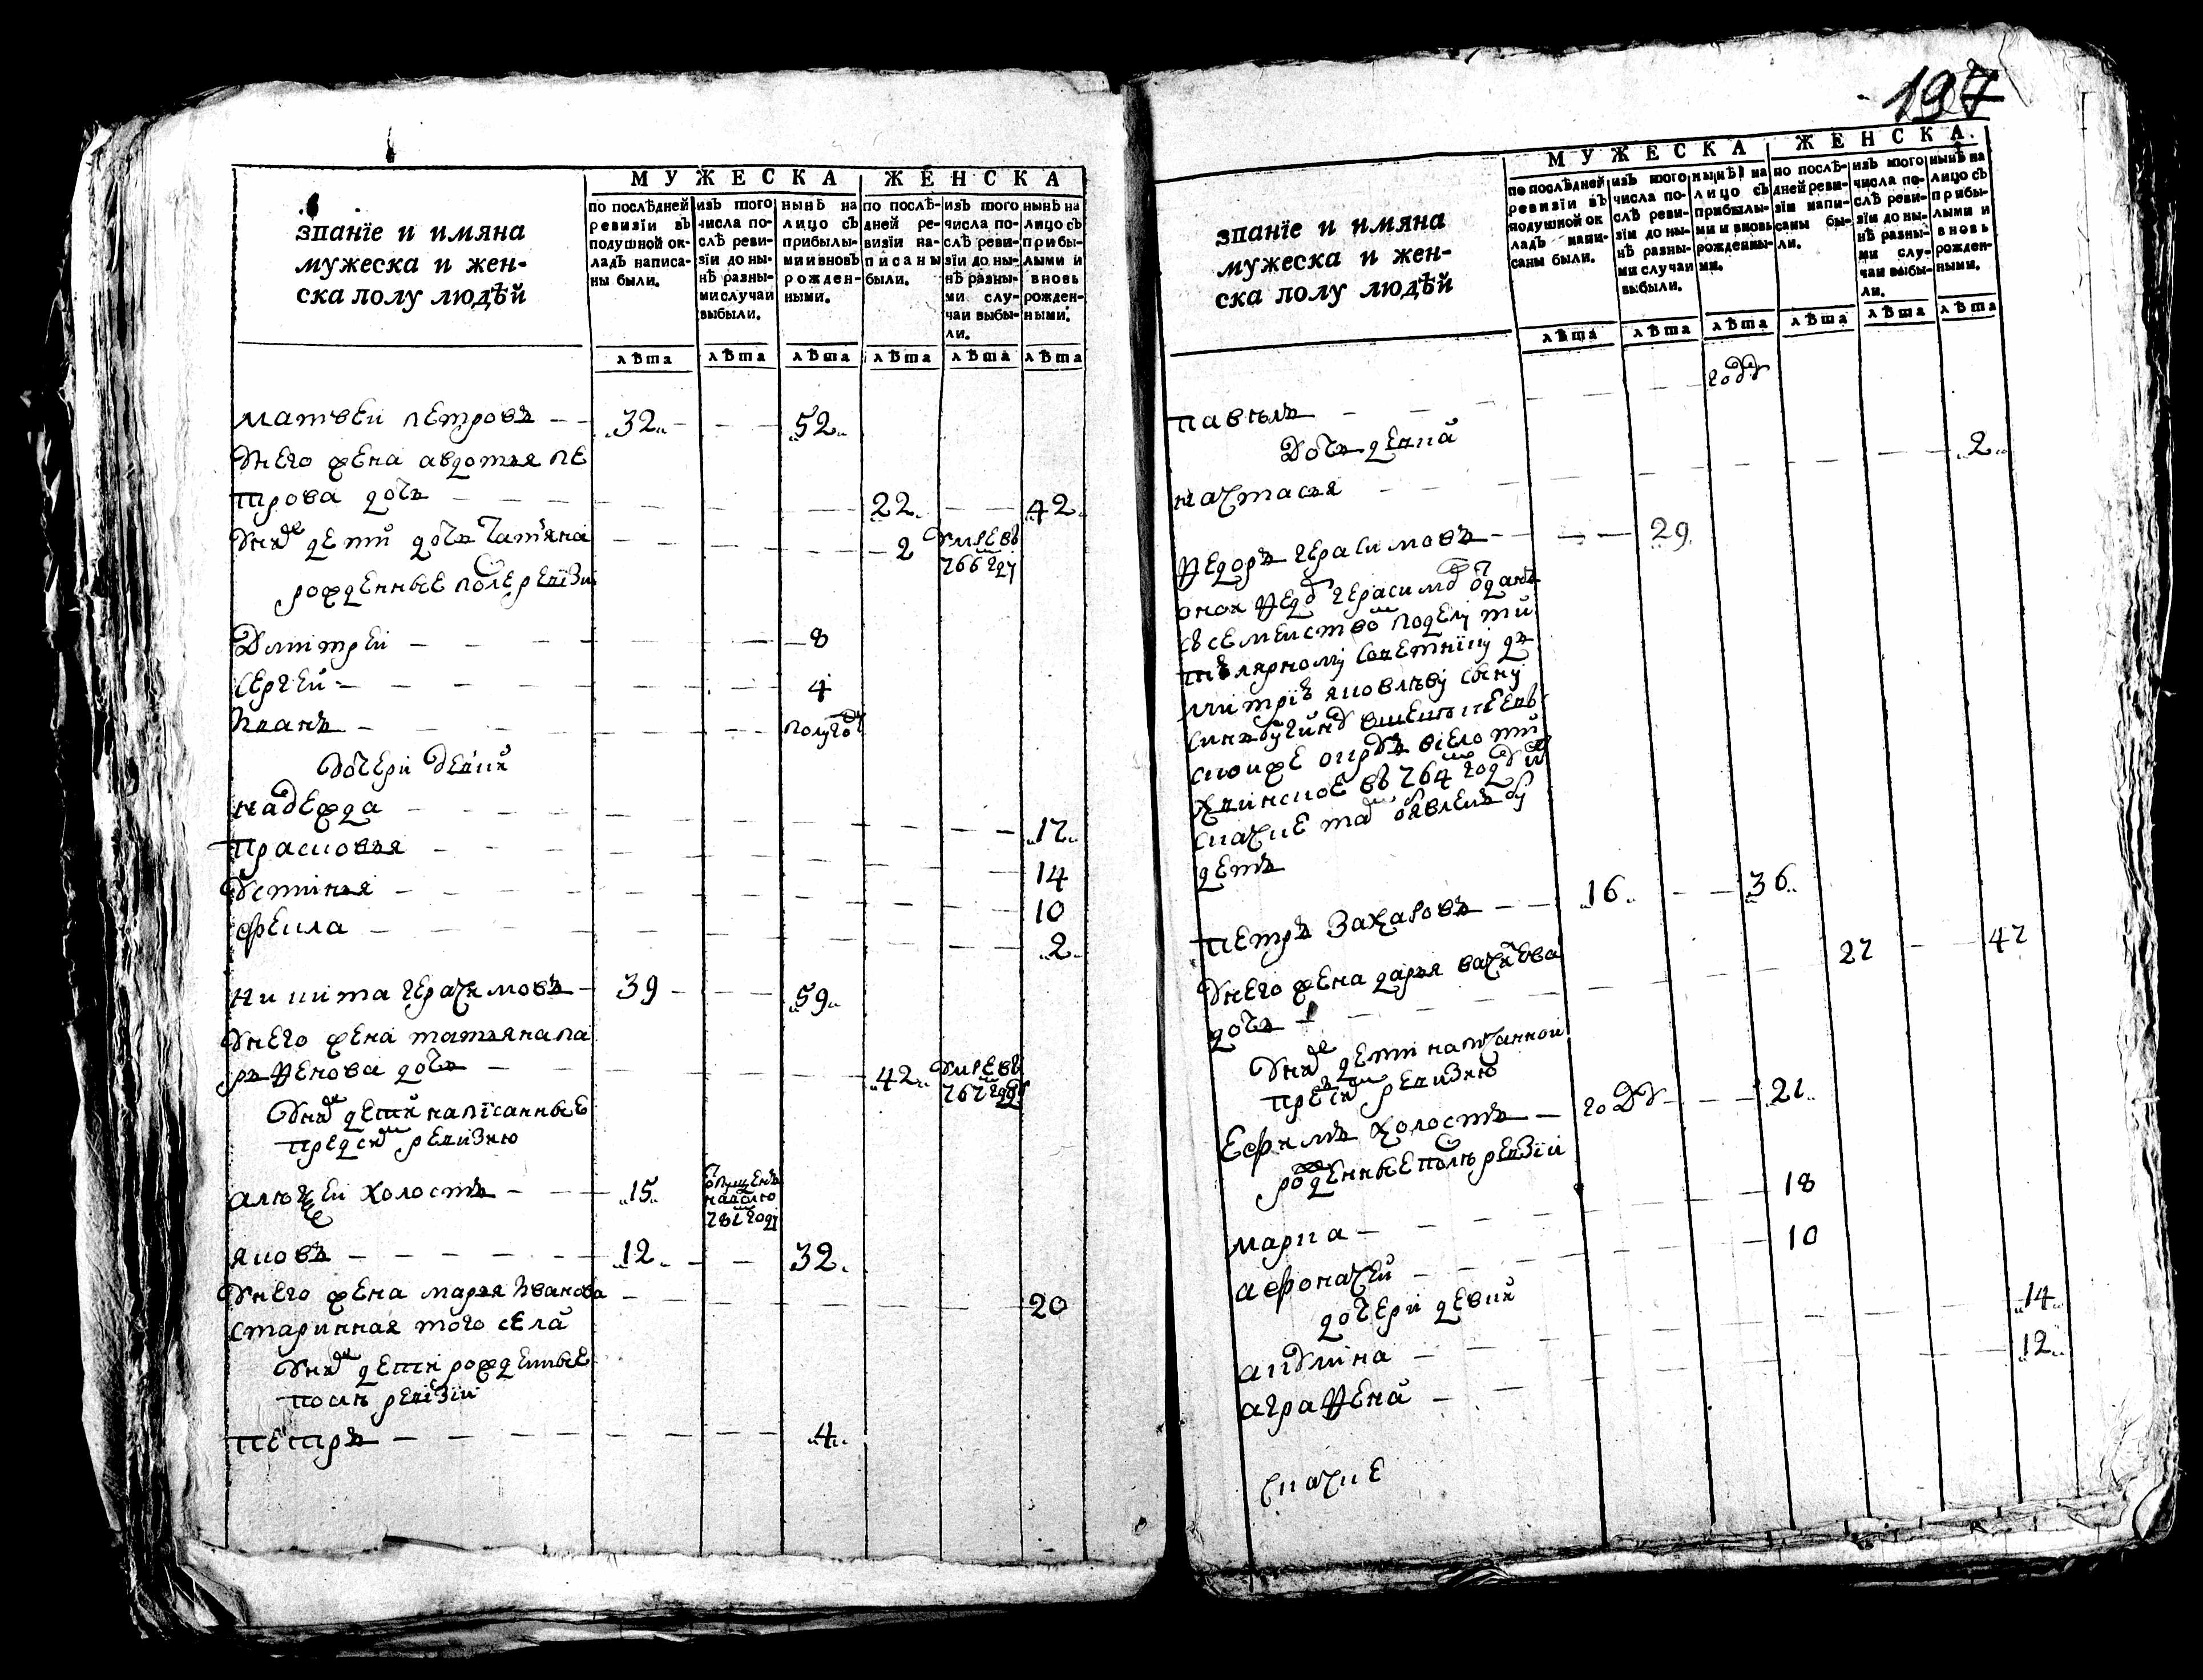 званїе и имяна
мужеска и жен-
ска полу людѣй
МУЖЕСКА
ЖЕНСКА
по послѣдней
ревизїи въ
подушной ок-
ладъ написа-
ны были.
изъ того
числа по-
слѣ реви-
зїи до ны-
нѣ разны-
ми случаи
выбыли.
нынѣ на
лицо съ
прибылы-
ми и вновь
рожден-
ными.
по послѣ-
дней ре-
визїи на-
писаны
были.
изъ того
числа по-
слѣ реви-
зїи до ны-
нѣ разны-
ми слу-
чаи выбы-
ли.
нынѣ на
лицо съ
прибы-
лыми и
вновь
рожден-
ными.
лѣта лѣта лѣта лѣта лѣта лѣта
матвеи петровъ 32 52
унего жена авдотья пе
трова дочь 22 42
унихъ дети дочь татьяна 2 умре въ
766 году
рожденные после ревизи
дмитреи 8
сергей 4
иванъ полугоду
дочери девки
надежда 17
прасковья 14
устинья 10
фекла 2
никита герасимовъ 39 59
унего жена татьяна па
рфенова дочь 42 умре въ
767 году
унихъ дети написанные
предсию ревизию
алексеи холостъ 15
782 году
яковъ 12 32
унего жена марья иванова 20
старинная того села
унихъ дети рожденные
после ревизии
петръ 4
197
званїе и имяна
мужеска и жен-
ска полу людѣй
МУЖЕСКА
ЖЕНСКА
по послѣдней
ревизїи въ
подушной ок
ладъ напи-
саны были.
изъ того
числа по-
слѣ реви-
зїи до ны-
нѣ разны-
ми случаи
выбыли.
нынѣ на
лицо съ
прибылы-
ми и вновь
рожденны-
ми.
по послѣ-
дней реви-
зїи напи-
саны бы-
ли.
изъ того
числа по-
слѣ реви-
зїи до ны-
нѣ разны-
ми слу-
чаи выбы-
ли.
нынѣ на
лицо съ
прибы-
лыми и
вновь
рожден-
ными.
лѣта лѣта лѣта лѣта лѣта лѣта
павелъ году
дочь девка
настасья 2
федоръ герасимовъ 29
оной федоръ герасимовъ отданъ
съсемеиствомъ поделу ти
тулярному советнику дъ
митрїю яковлеву сыну
въ 764 году и
скаске тамъ обявленъ бу
детъ
петръ захаровъ 16 36
унего жена дарья васильева 27 47
дочь
унихъ дети написанной
предсию ревизию
ефимъ холостъ году 21
рожденные после ревизїи
марка 18
афонасеи 10
дочери девки
акулина 14
аграфена 12
скаске